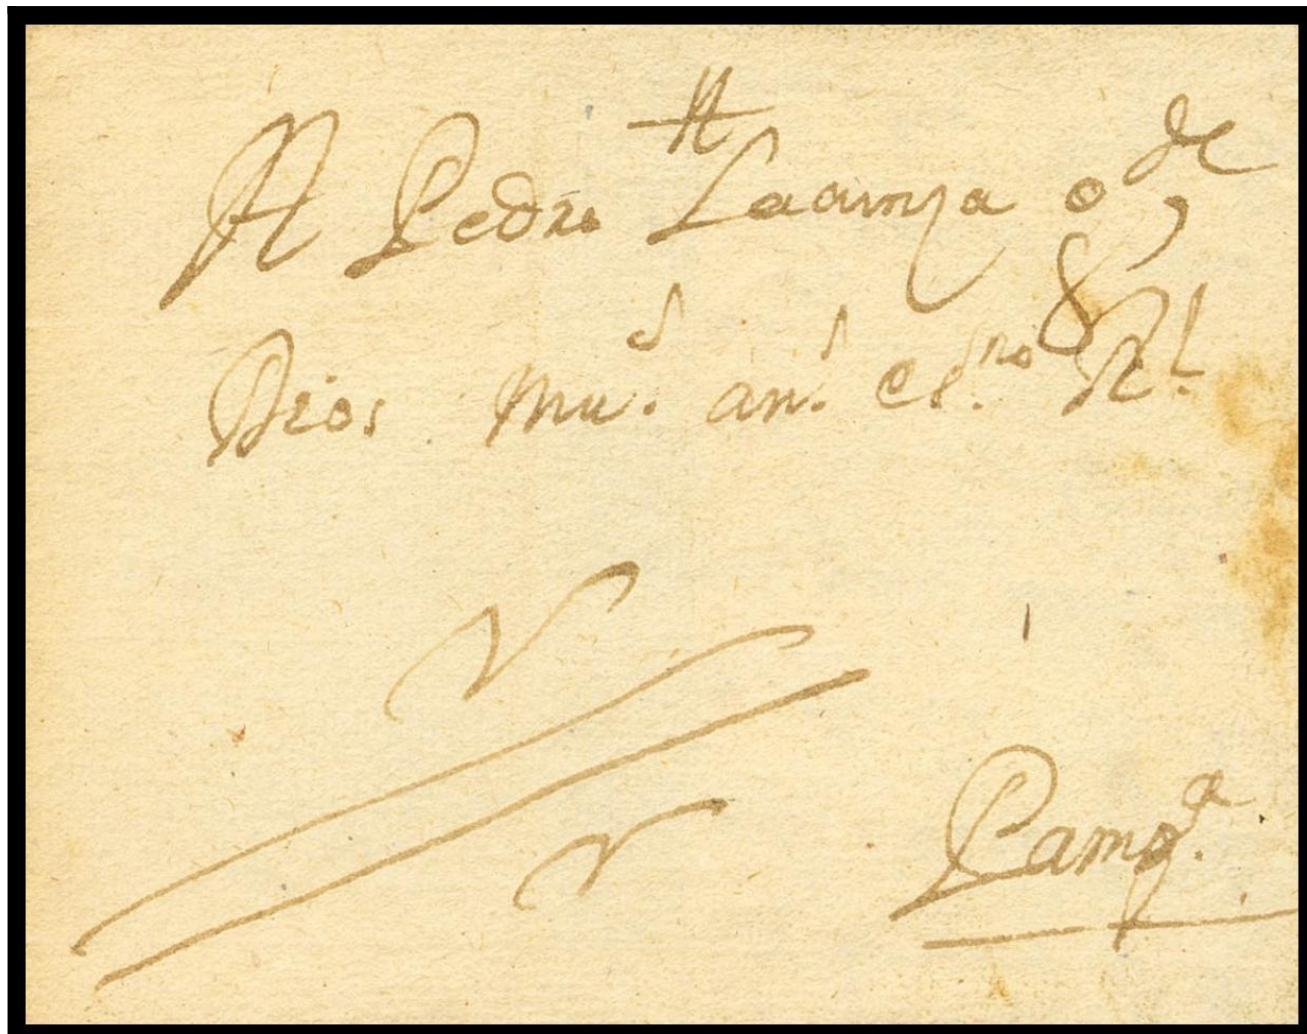 A Pedro Laainza g.de
Dios mu.s an.s es.no R.l
Pamp.a